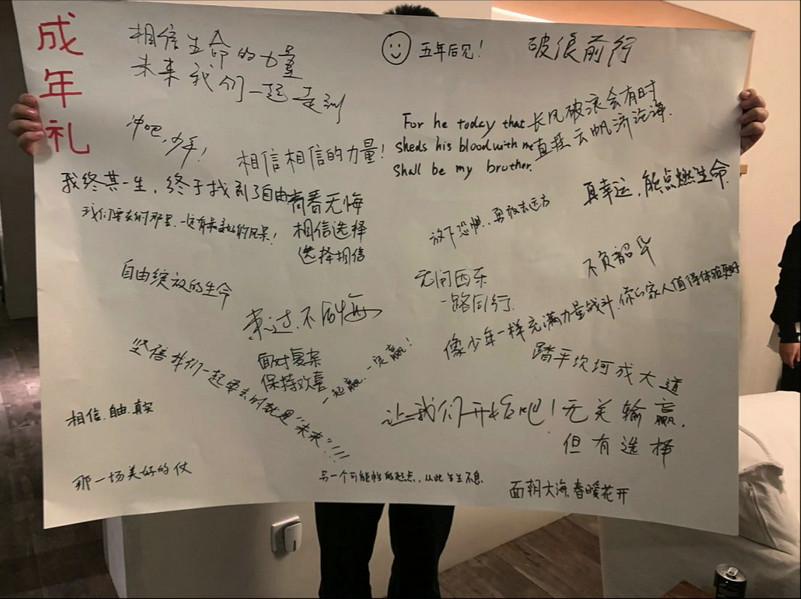 成年礼
相信生命的力量
未来我们一起走到
冲吧,少年!
相信相信的力量!
我终其一生,终于找到了自由
青春无悔
相信选择
选择相信
我们要去的那里,一定有最美好的风景!
自由绽放的生命
来过,不后悔
面对复杂
保持欢喜
一起赢,一定赢!
坚信我们一起要去的就是“未来”!!!
相信、自由、真实
那一场美好的仗
五年后见!
破浪前行
For he today that
sheds his blood with me
Shall be my brother.
长风破浪会有时
直挂云帆济沧海.
真幸运,能点燃生命.
放下恐惧、勇敢去远方
无问西东
一路同行.
不负韶华
像少年一样充满力量战斗.你的家人值得体验更好
踏平坎坷成大道
让我们开始吧!无关输赢,
但有选择
另一个可能性的起点,从此生生不息
面朝大海,春暖花开